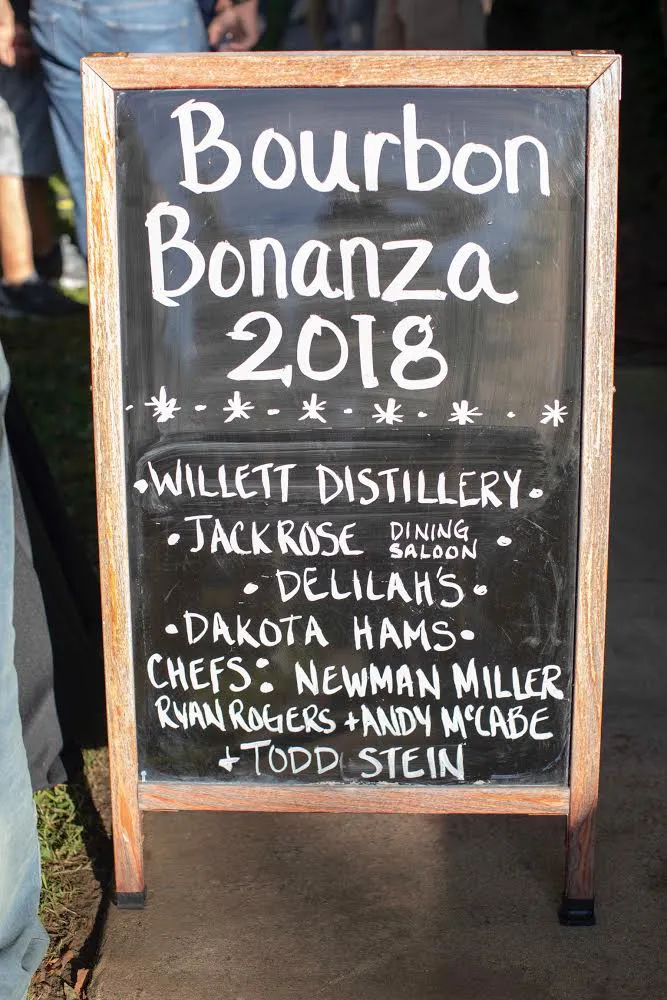 Bourbon
Bonanza
2018
* - * - * - * - * - *
• WILLETT DISTILLERY •
• JACK ROSE DINING SALOON •
• DELILAH'S •
• DAKOTA HAMS •
CHEFS: NEWMAN MILLER
RYAN ROGERS + ANDY McCABE
+ TODD STEIN